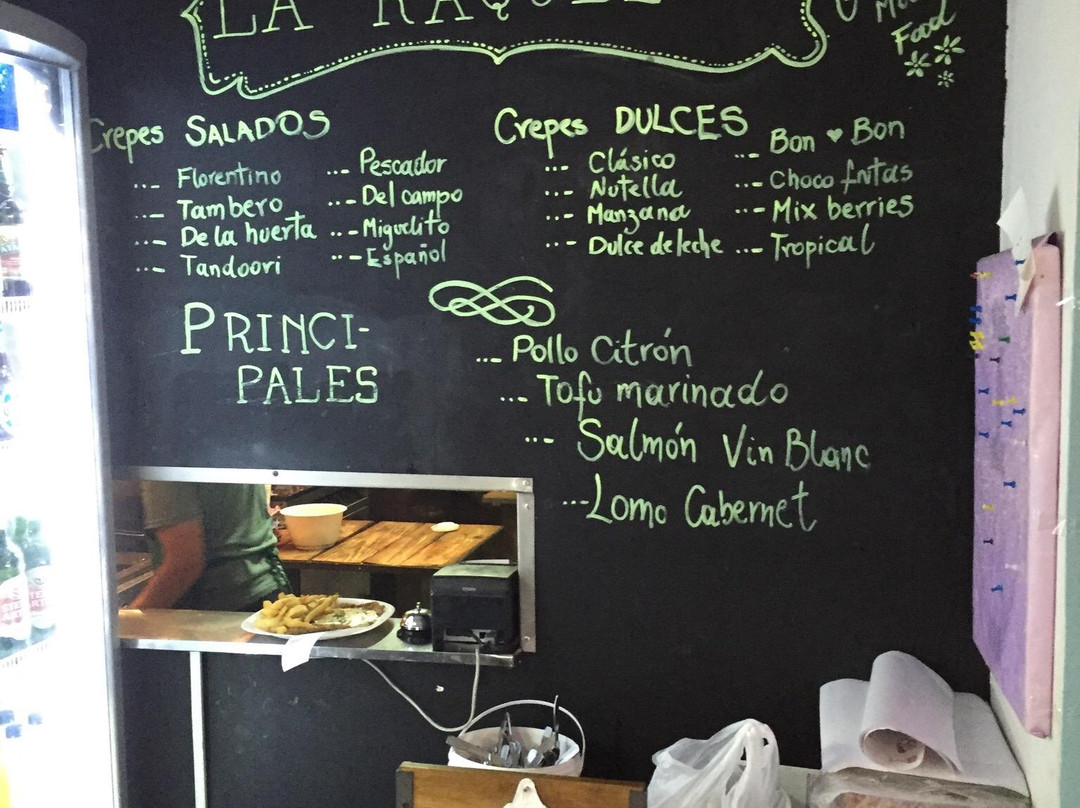 LA RAQUEL
Food
Crepes SALADOS
... Florentino
... Tambero
... De la huerta
... Tandoori
... Pescador
... Del campo
... Miguelito
... Español
Crepes DULCES
... Clásico
... Nutella
... Manzana
... Dulce de leche
... Bon ♥ Bon
... Choco frutas
... Mix berries
... Tropical
PRINCI-
PALES
... Pollo Citrón
... Tofu marinado
... Salmón Vin Blanc
... Lomo Cabernet